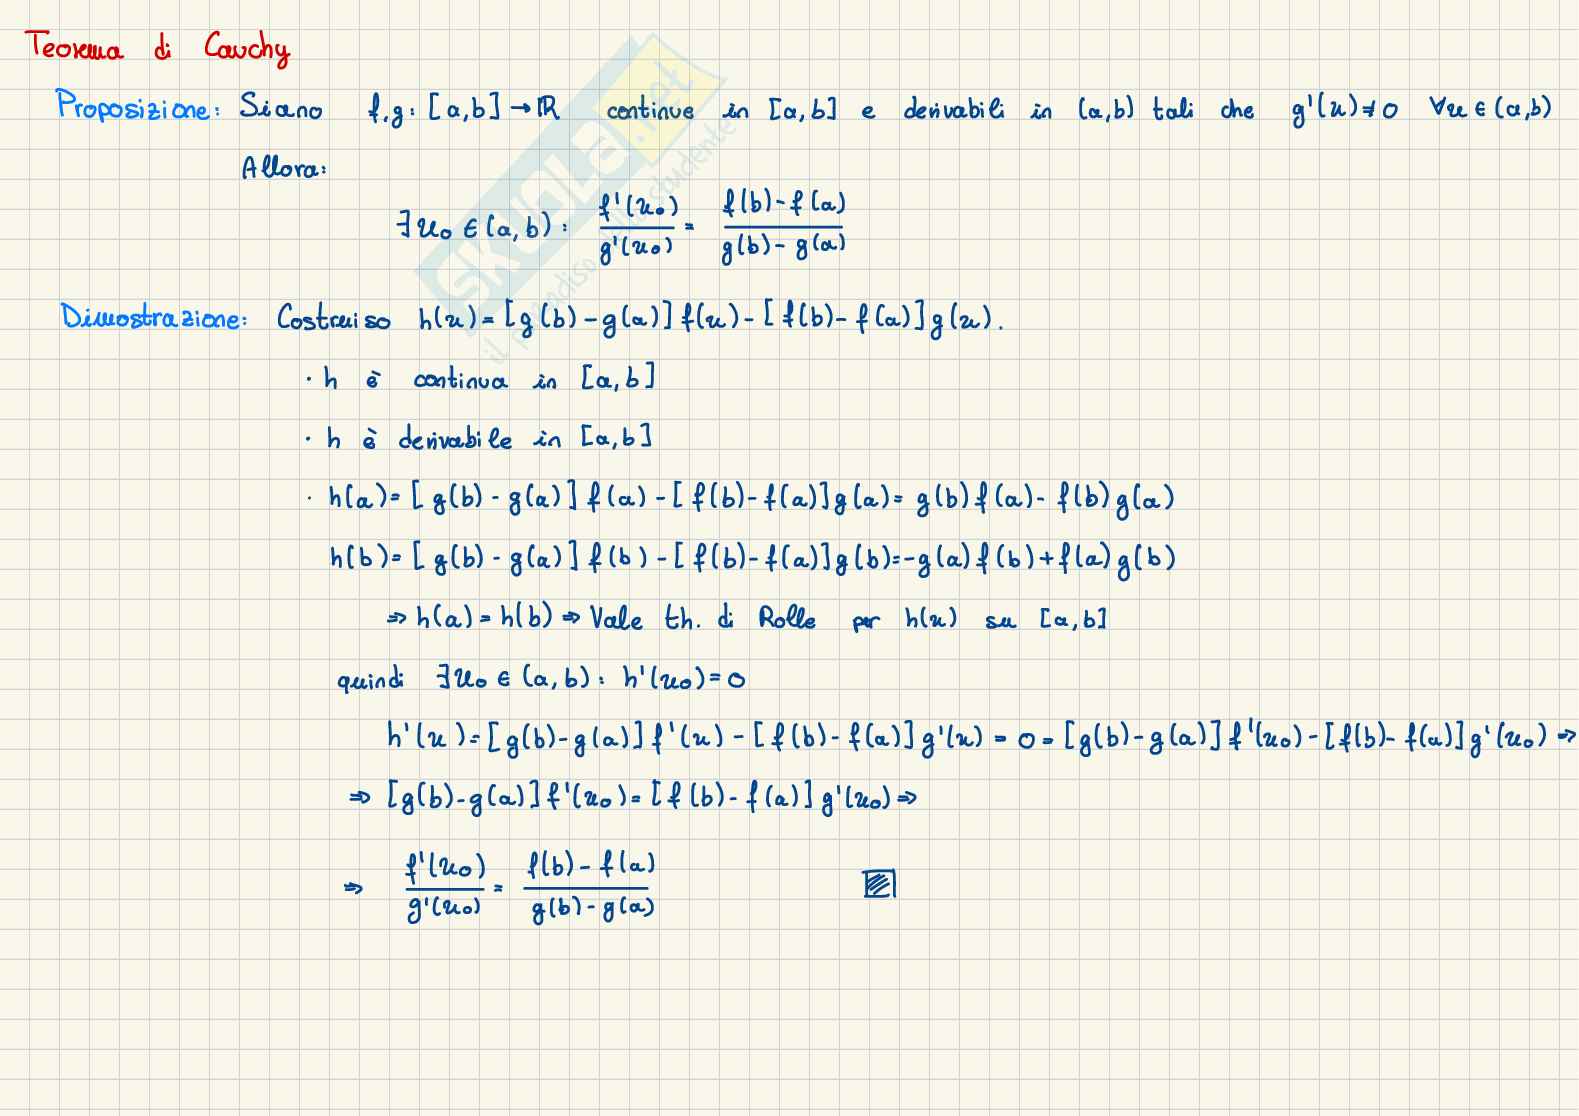 Teorema di Cauchy
Proposizione: Siano f,g: [a,b] → ℝ continue in [a,b] e derivabili in (a,b) tali che g'(x)≠0 ∀x∈(a,b)
Allora:
∃x₀∈(a,b): f'(x₀)/g'(x₀) = (f(b)-f(a))/(g(b)-g(a))
Dimostrazione: Costruiso h(x)=[g(b)-g(a)]f(x)-[f(b)-f(a)]g(x).
· h è continua in [a,b]
· h è derivabile in [a,b]
· h(a)=[g(b)-g(a)]f(a)-[f(b)-f(a)]g(a)= g(b)f(a)-f(b)g(a)
h(b)=[g(b)-g(a)]f(b)-[f(b)-f(a)]g(b)=-g(a)f(b)+f(a)g(b)
⇒ h(a)=h(b) ⇒ Vale th. di Rolle per h(x) su [a,b]
quindi ∃x₀∈(a,b): h'(x₀)=0
h'(x)=[g(b)-g(a)]f'(x)-[f(b)-f(a)]g'(x)=0=[g(b)-g(a)]f'(x₀)-[f(b)-f(a)]g'(x₀) ⇒
⇒ [g(b)-g(a)]f'(x₀)=[f(b)-f(a)]g'(x₀) ⇒
⇒ f'(x₀)/g'(x₀) = (f(b)-f(a))/(g(b)-g(a))
SKUOLA.net
il paradiso dello studente